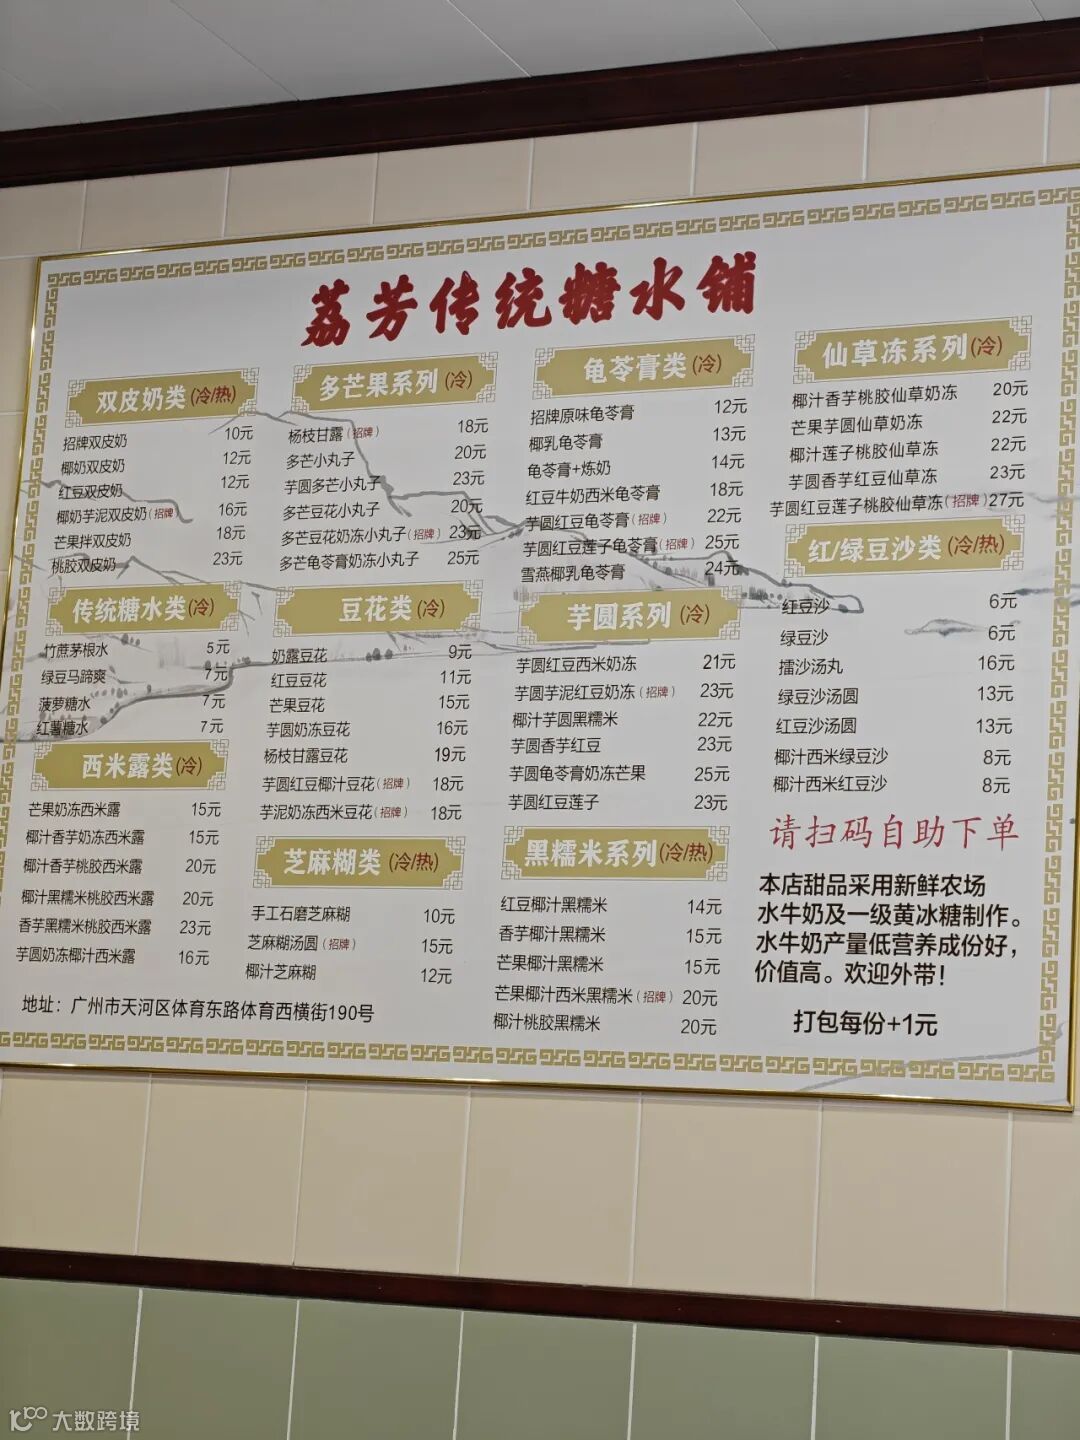 荔芳传统糖水铺
双皮奶类(冷/热)
招牌双皮奶 10元
椰奶双皮奶 12元
红豆双皮奶 12元
椰奶芋泥双皮奶(招牌) 16元
芒果拌双皮奶 18元
桃胶双皮奶 23元
传统糖水类(冷)
竹蔗茅根水 5元
绿豆马蹄爽 7元
菠萝糖水 7元
红薯糖水 7元
西米露类(冷)
芒果奶冻西米露 15元
椰汁香芋奶冻西米露 15元
椰汁香芋桃胶西米露 20元
椰汁黑糯米桃胶西米露 20元
香芋黑糯米桃胶西米露 23元
芋圆奶冻椰汁西米露 16元
多芒果系列(冷)
杨枝甘露(招牌) 18元
多芒小丸子 20元
芋圆多芒小丸子 23元
多芒豆花小丸子 20元
多芒豆花奶冻小丸子(招牌) 23元
多芒龟苓膏奶冻小丸子 25元
豆花类(冷)
奶露豆花 9元
红豆豆花 11元
芒果豆花 15元
芋圆奶冻豆花 16元
杨枝甘露豆花 19元
芋圆红豆椰汁豆花(招牌) 18元
芋泥奶冻西米豆花(招牌) 18元
芝麻糊类(冷/热)
手工石磨芝麻糊 10元
芝麻糊汤圆(招牌) 15元
椰汁芝麻糊 12元
龟苓膏类(冷)
招牌原味龟苓膏 12元
椰乳龟苓膏 13元
龟苓膏+炼奶 14元
红豆牛奶西米龟苓膏 18元
芋圆红豆龟苓膏(招牌) 22元
芋圆红豆莲子龟苓膏(招牌) 25元
雪燕椰乳龟苓膏 24元
芋圆系列(冷)
芋圆红豆西米奶冻 21元
芋圆芋泥红豆奶冻(招牌) 23元
椰汁芋圆黑糯米 22元
芋圆香芋红豆 23元
芋圆龟苓膏奶冻芒果 25元
芋圆红豆莲子 23元
黑糯米系列(冷/热)
红豆椰汁黑糯米 14元
香芋椰汁黑糯米 15元
芒果椰汁黑糯米 15元
芒果椰汁西米黑糯米(招牌) 20元
椰汁桃胶黑糯米 20元
仙草冻系列(冷)
椰汁香芋桃胶仙草奶冻 20元
芒果芋圆仙草奶冻 22元
椰汁莲子桃胶仙草冻 22元
芋圆香芋红豆仙草冻 23元
芋圆红豆莲子桃胶仙草冻(招牌) 27元
红/绿豆沙类(冷/热)
红豆沙 6元
绿豆沙 6元
擂沙汤丸 16元
绿豆沙汤圆 13元
红豆沙汤圆 13元
椰汁西米绿豆沙 8元
椰汁西米红豆沙 8元
请扫码自助下单
本店甜品采用新鲜农场
水牛奶及一级黄冰糖制作。
水牛奶产量低营养成份好，
价值高。欢迎外带！
打包每份+1元
地址：广州市天河区体育东路体育西横街190号
大数跨境